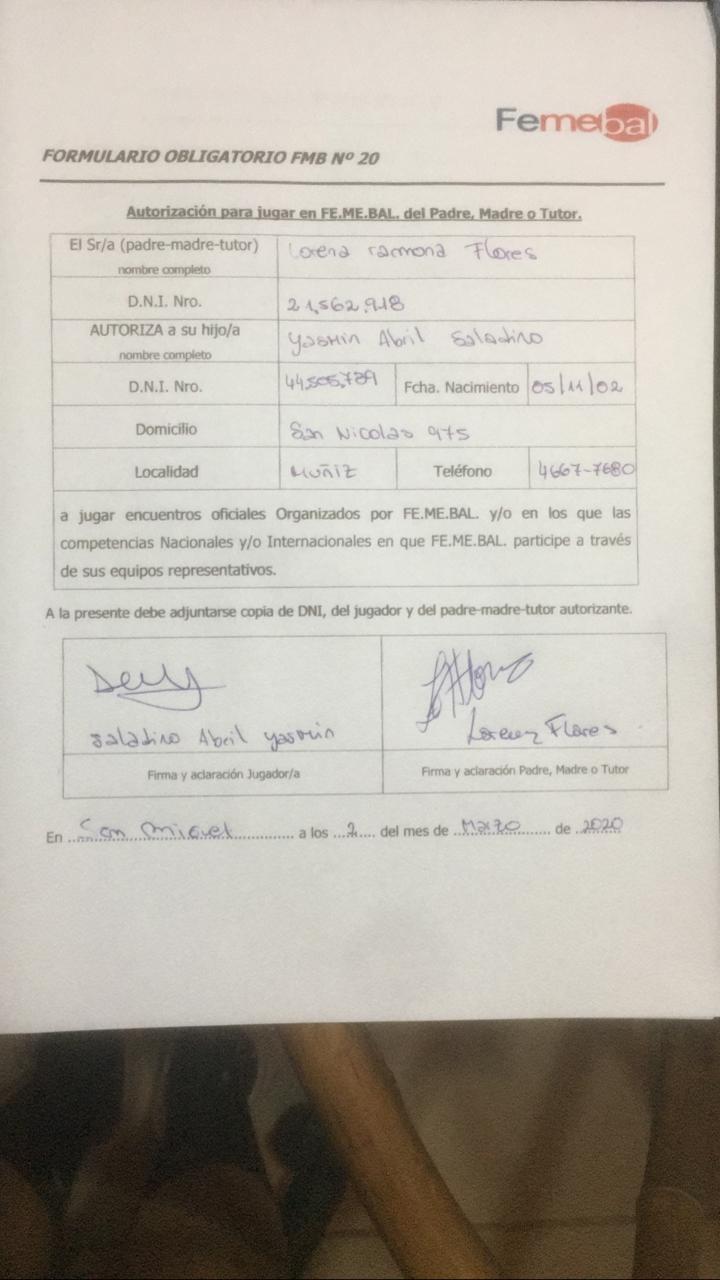 Femebal
FORMULARIO OBLIGATORIO FMB Nº 20
Autorización para jugar en FE.ME.BAL. del Padre, Madre o Tutor.
El Sr/a (padre-madre-tutor) Lorena ramona Flores
nombre completo
D.N.I. Nro. 21,562,918
AUTORIZA a su hijo/a Yasmin Abril Saladino
nombre completo
D.N.I. Nro. 44,505,789 Fcha. Nacimiento 05/11/02
Domicilio San Nicolas 975
Localidad MUÑIZ Teléfono 4667-7680
a jugar encuentros oficiales Organizados por FE.ME.BAL. y/o en los que las
competencias Nacionales y/o Internacionales en que FE.ME.BAL. participe a través
de sus equipos representativos.
A la presente debe adjuntarse copia de DNI, del jugador y del padre-madre-tutor autorizante.
Saladino Abril Yasmin Lorena Flores
Firma y aclaración Jugador/a Firma y aclaración Padre, Madre o Tutor
En San Miguel a los 2 del mes de Marzo de 2020